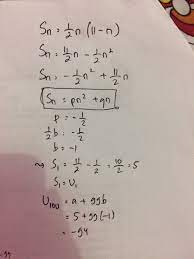 Sn = 1/2 n (11 - n)
Sn = 11/2 n - 1/2 n²
Sn = -1/2 n² + 11/2 n
Sn = pn² + qn
p = -1/2
1/2 b = -1/2
b = -1
→ S₁ = 11/2 - 1/2 = 10/2 = 5
S₁ = U₁
U₁₀₀ = a + 99b
= 5 + 99 (-1)
= -94